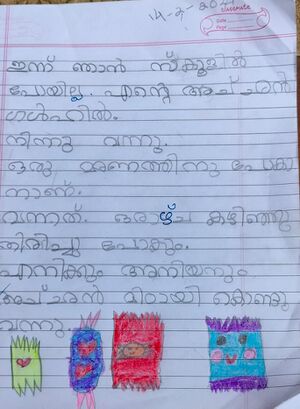 14-2-2024
classmate
Date
Page
ഇന്ന് ഞാൻ സ്കൂളിൽ
പോയില്ല. എൻ്റെ അച്ഛൻ
ഗൾഫിൽ.
നിന്നു വന്നു.
ഒരു കല്യാണത്തിനു
നാണ്.
വന്നത്. ഒരാഴ്ച കഴിഞ്ഞു
തിരിച്ചു പോകും.
എനിക്കും അനിയനും
അച്ഛൻ മിഠായി കൊണ്ടു
വന്നു.